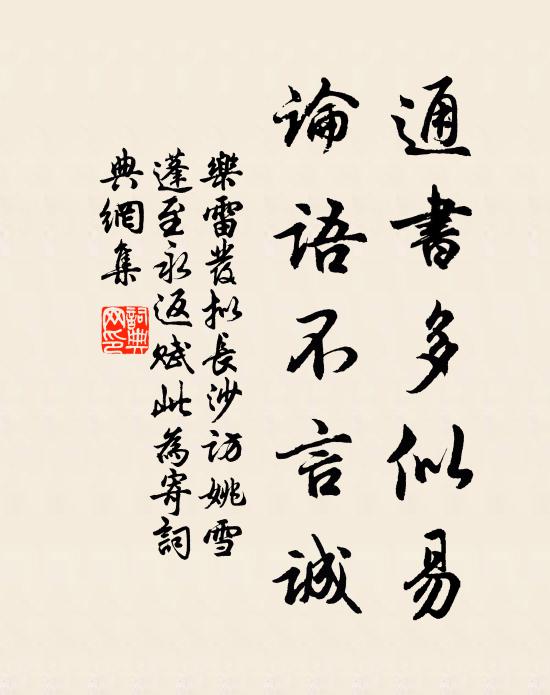 通書多似易
論語不言誠
樂雷發拟長沙訪姚雪
蓬至永返賦此為寄詞
典網集
詞典网印